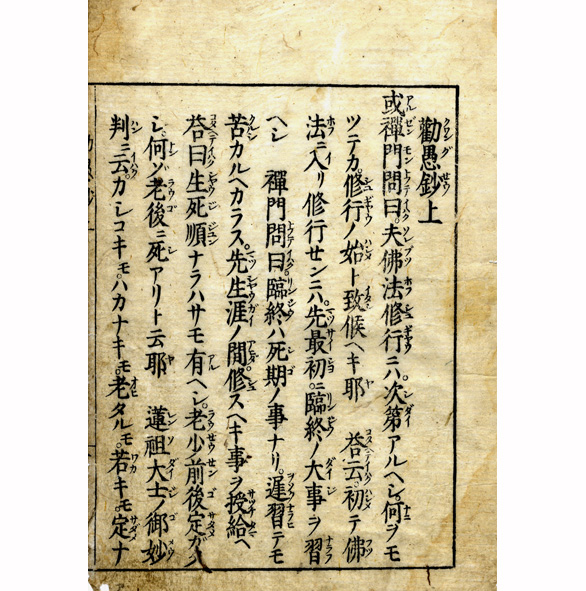 勸愚鈔上
或禪門問曰。夫佛法修行ニハ。次第アルヘシ。何ヲモ
ツテカ。修行ノ始ト致候ヘキ耶　答云。初テ佛
法ニ入リ修行センニハ。先最初ニ臨終ノ大事ヲ習
ヘシ　禪門問曰。臨終ハ死期ノ事ナリ。遅習テモ
苦カルヘカラス。先生涯ノ間修スヘキ事ヲ授給ヘ
答曰生死順ナラハサモ有ヘシ。老少前後定ガタ
シ。何ゾ老後ニ死アリト云耶　蓮祖大士ノ御妙
判ニ云。カシコキモ。ハカナキモ。老タルモ。若キモ定ナ